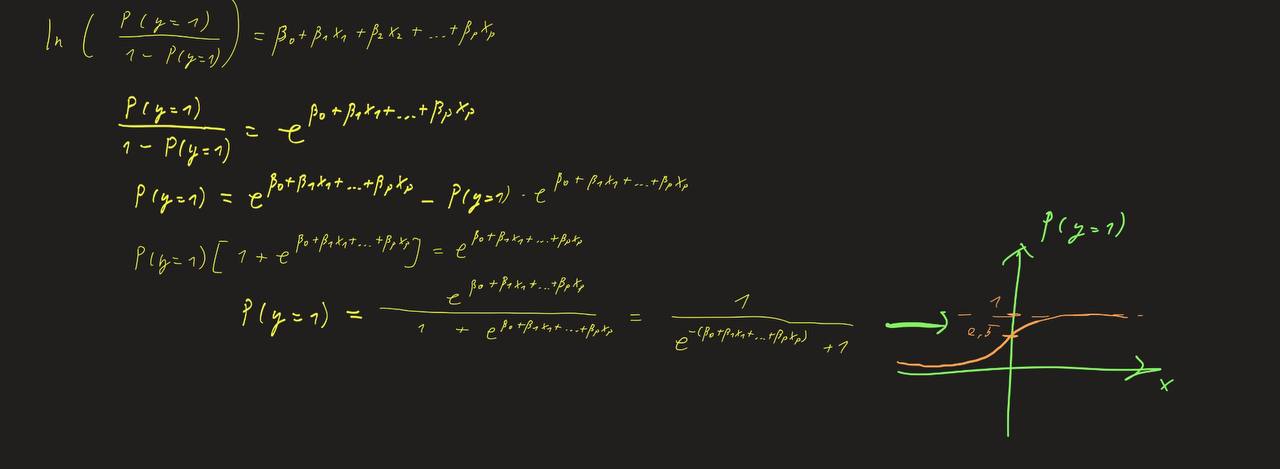 ln ( P(y=1) / 1 - P(y=1) ) = β₀ + β₁x₁ + β₂x₂ + ... + βₚxₚ
P(y=1) / 1 - P(y=1) = e^{β₀+β₁x₁+...+βₚxₚ}
P(y=1) = e^{β₀+β₁x₁+...+βₚxₚ} - P(y=1) · e^{β₀+β₁x₁+...+βₚxₚ}
P(y=1) [ 1 + e^{β₀+β₁x₁+...+βₚxₚ} ] = e^{β₀+β₁x₁+...+βₚxₚ}
P(y=1) = e^{β₀+β₁x₁+...+βₚxₚ} / 1 + e^{β₀+β₁x₁+...+βₚxₚ} = 1 / e^{-(β₀+β₁x₁+...+βₚxₚ)} + 1
P(y=1)
1
0,5
x